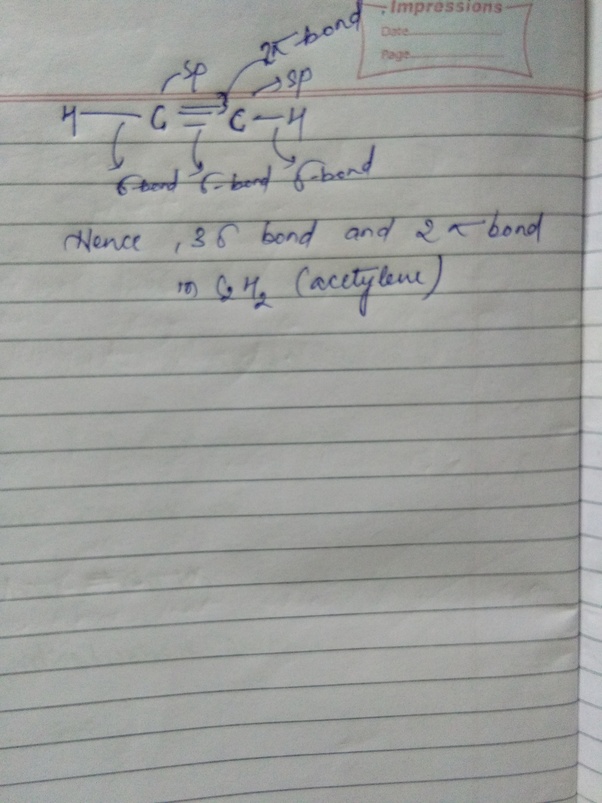 Impressions
Date
Page
2π bond
sp
sp
H — C ≡ C — H
σ-bond σ-bond σ-bond
Hence , 3σ bond and 2π bond
in C2H2 (acetylene)